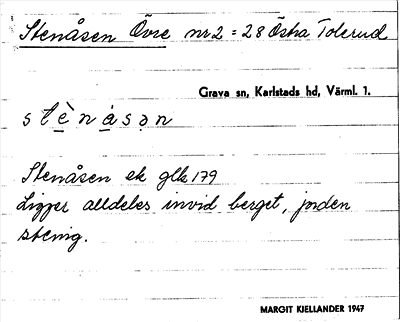 Stenåsen Övre nr 2 = 28 Östra Tolerud
Grava sn, Karlstads hd, Värml. l.
stènásən
Stenåsen ek glk 179
Ligger alldeles invid berget, jorden
stenig.
MARGIT KIELLANDER 1947